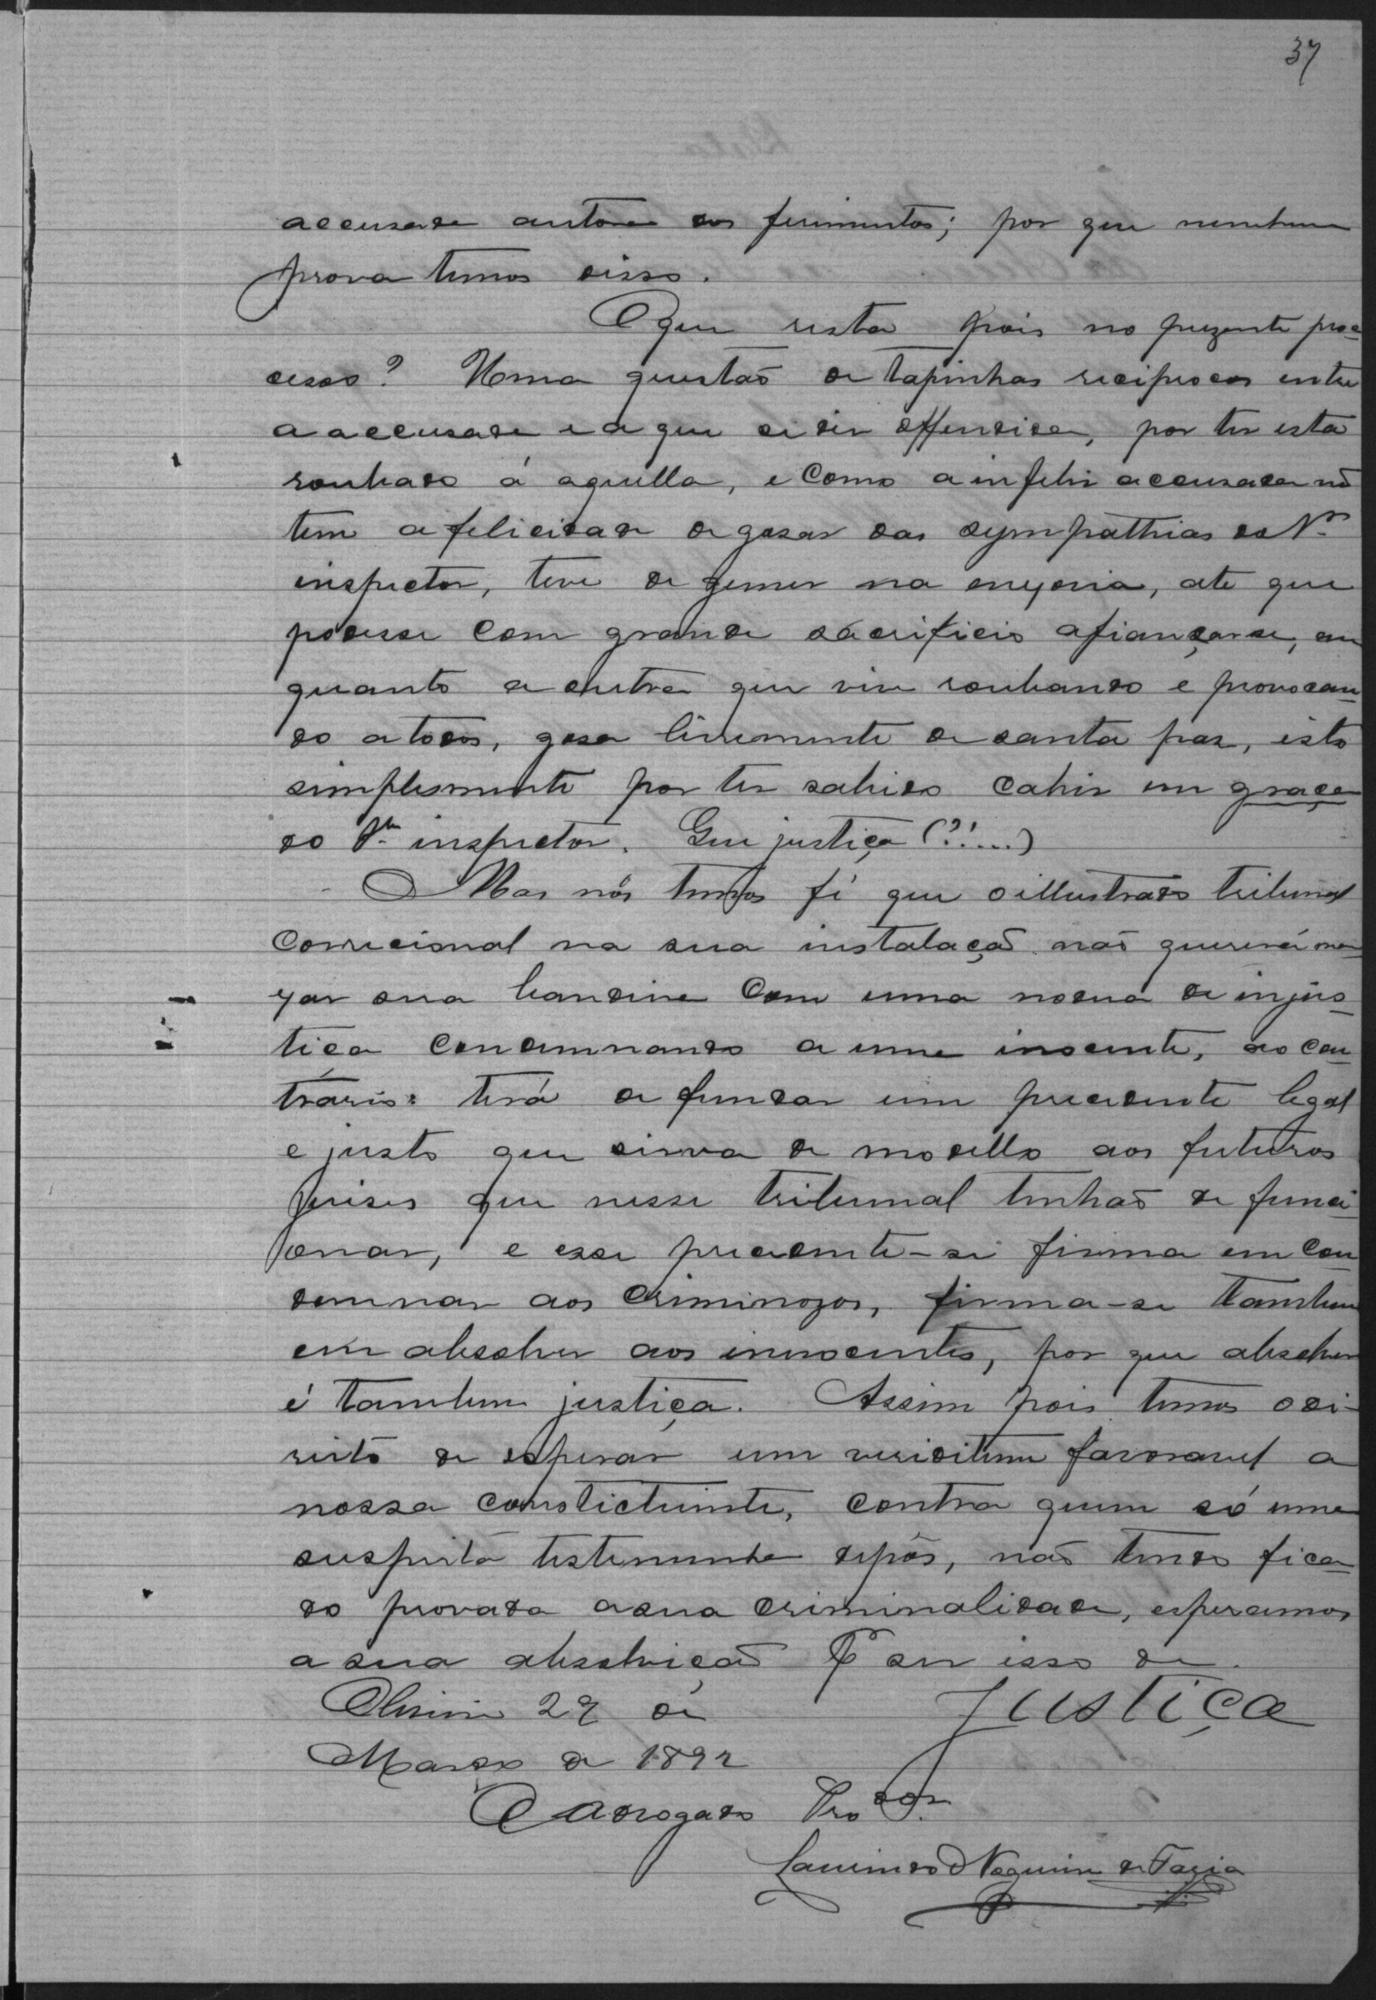 37
accusada autora dos ferimentos; por que nenhuma
prova temos disso.
O que resta pois no prezente pro-
cesso? Uma questão de tapinhas reciprocos entre
a accusada e a que se diz offendida, por ter esta
roubado á aquella, e como a infeliz accusada nõ
tem a felicidade de gosar das sympathias do Sr.
inspector, teve de gemer na enxovia, até que
podesse com grande sacrificio afiançar-se, em
quanto a outra que vive roubando e provocan-
do a todos, gosa livremente de santa paz, isto
simplesmente por ter sabido cahir em graça
do Sr. inspector. Que justiça (?!....)
Mas nós temos fé que o illustrado tribunal
correcional na sua instalação não quererá
sua bandeira com uma nodoa de injus-
tiça condemnando a uma inocente, ao con-
trario: terá de fundar um precedente legal
e justo que sirva de modello aos futuros
juises que nesse tribunal tenhaõ de funci-
onar, e esse precedente-se firma em con
demnar aos criminozos, firma-se tambem
em absolver aos innocentes, por que absolver
é tambem justiça. Assim pois temos o di-
reito de esperar um veriditum favoravel a
nossa constictuinte, contra quem só uma
suspeita testemunha depôs, não tendo fica-
do provada a sua criminalidade, esperamos
a sua absolvição P ser isso de
Justiça
29 de
Março de 1892
O Advogado Prodor.
Laurindo Nogueira de Faria